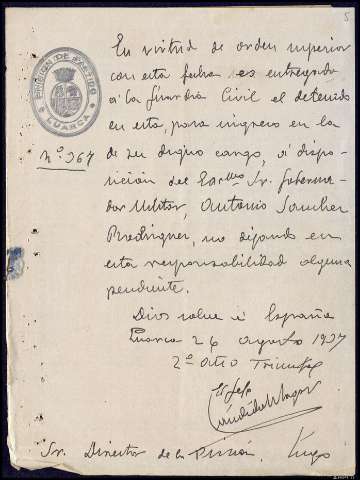 5
PRISION DE PARTIDO
LUARCA
En virtud de orden superior
con esta fecha es entregado
a la Guardia Civil el detenido
en esta, para ingreso en la
de su digno cargo, a dispo-
sición del Excmo Sr. Goberna-
dor Militar, Antonio Sanchez
Rodriguez, no dejando en
esta responsabilidad alguna
pendiente.
Nº 367
Dios salve a España
Luarca 26 agosto 1937
2º Año Triunfal
El Jefe
Sr. Director de la Prisión. Lugo